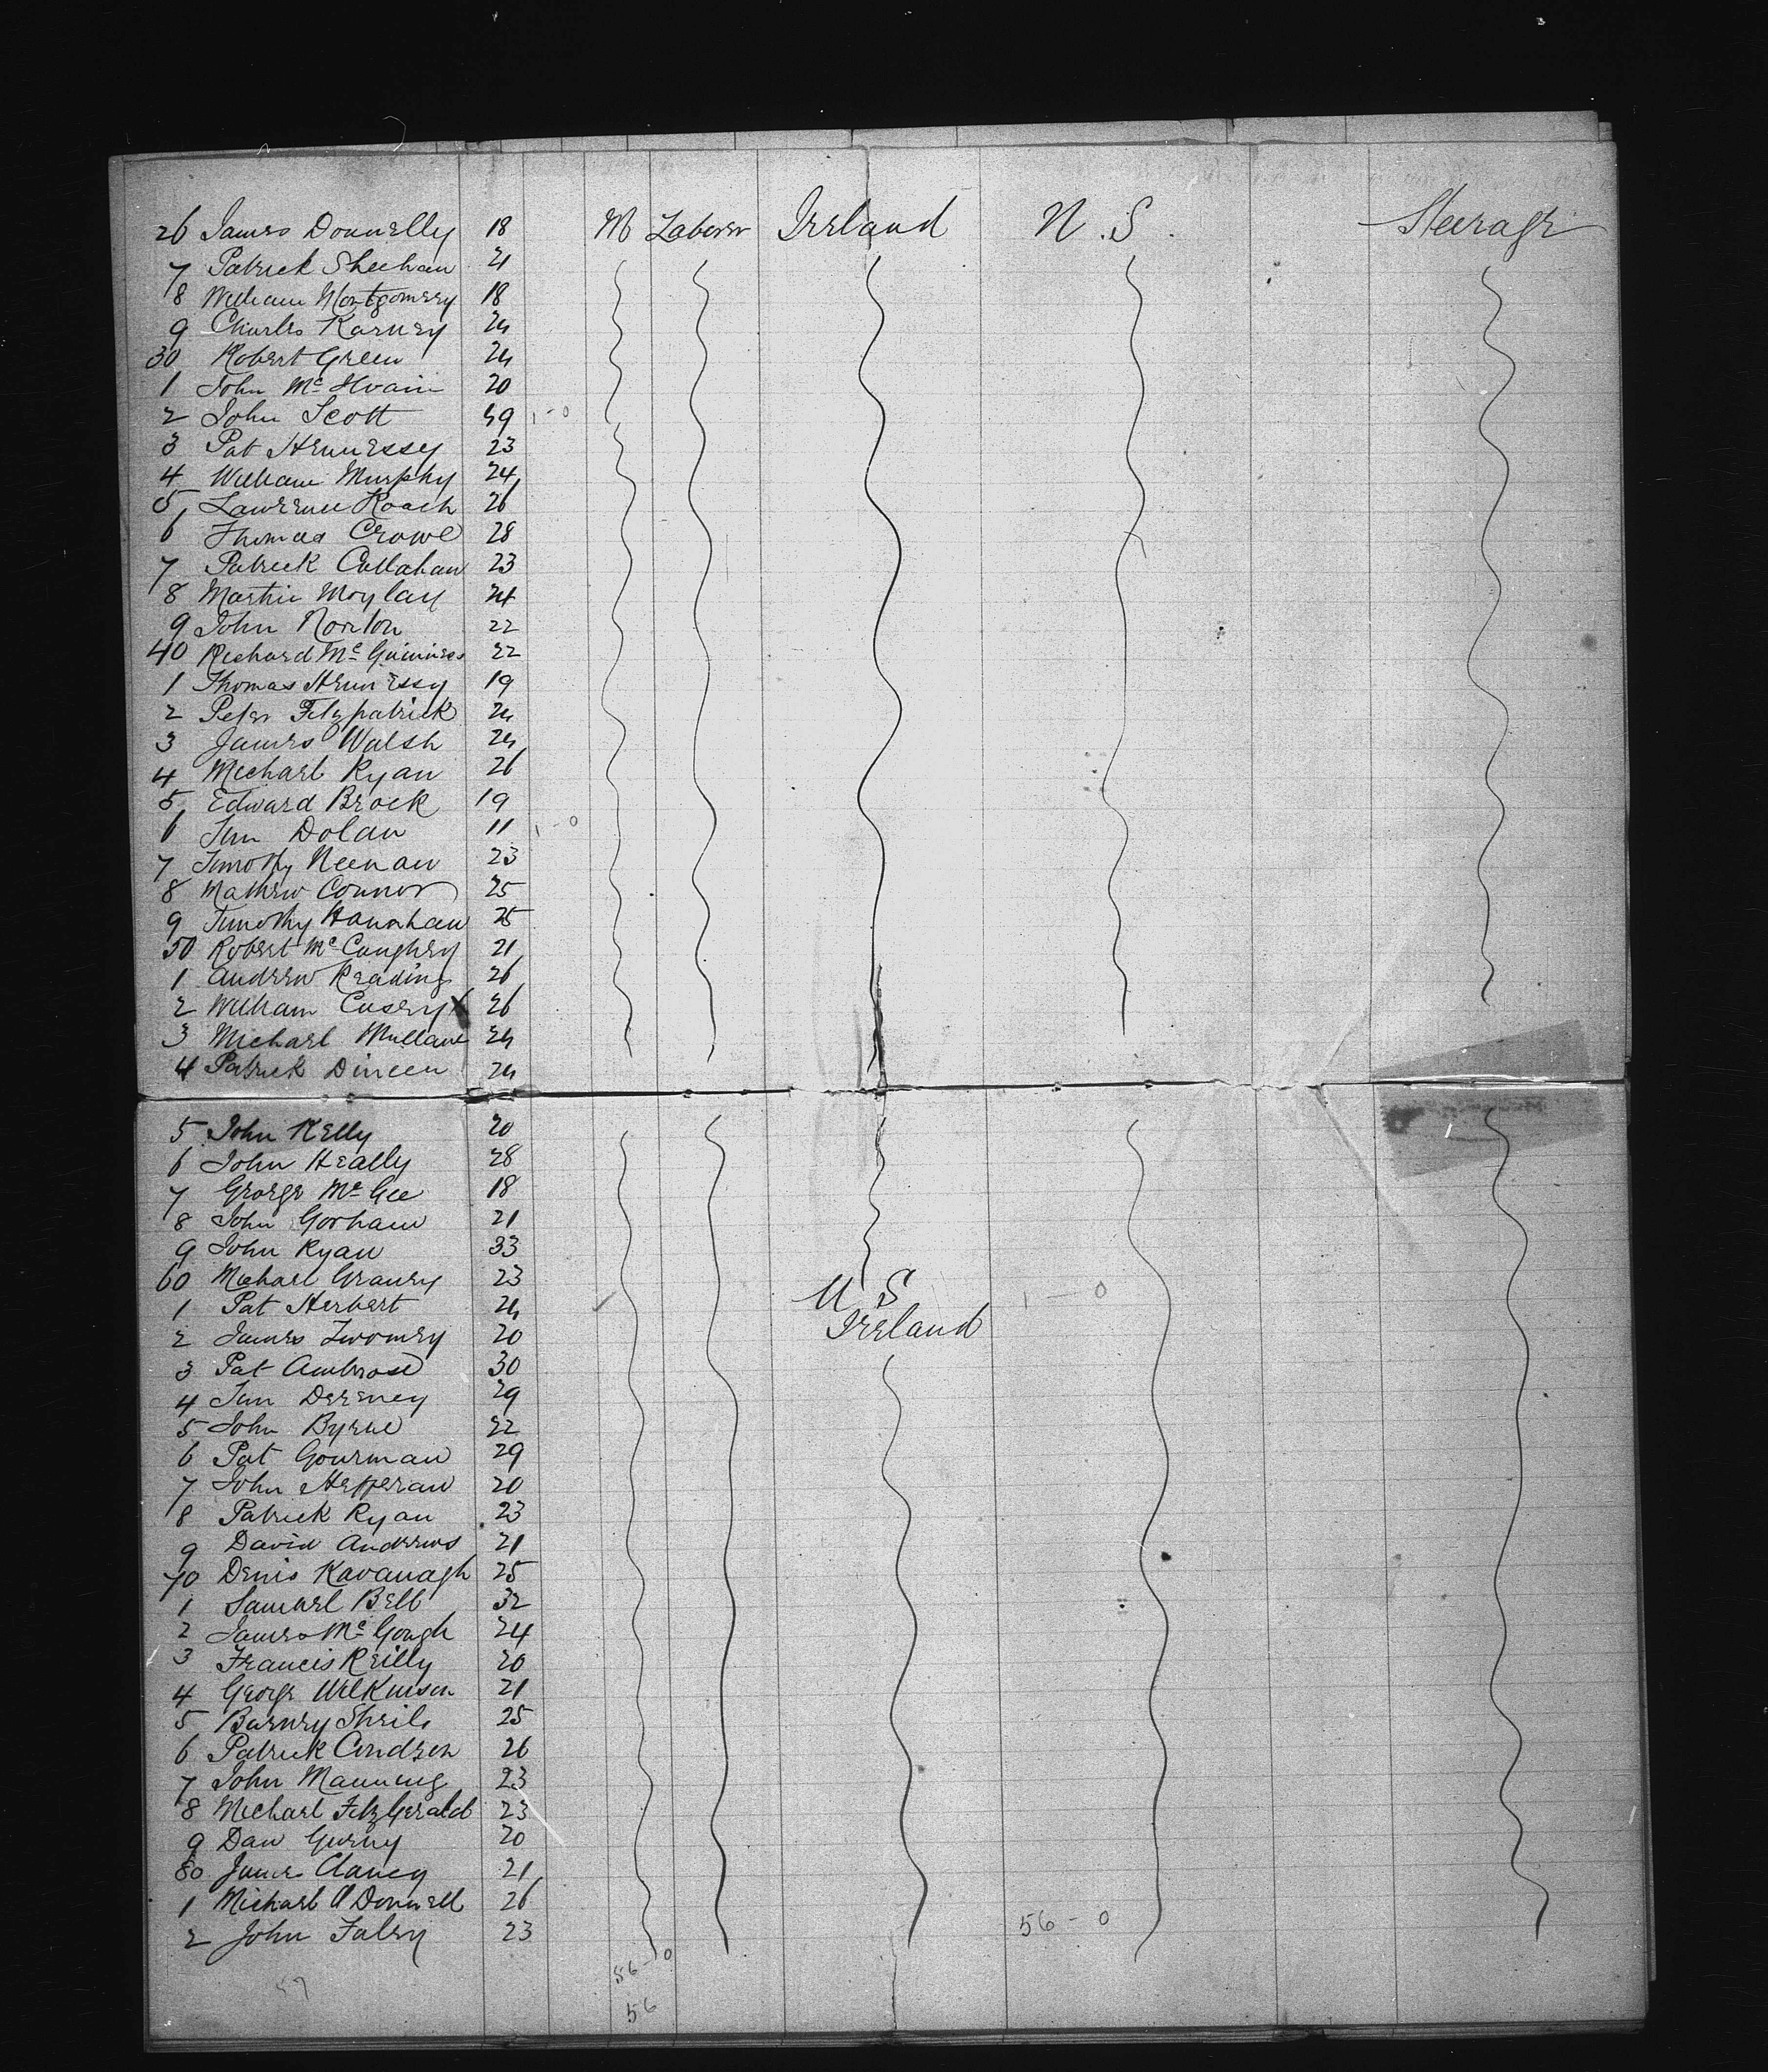 26 James Donnelly 18 M Laborer Ireland U.S. Steerage
7 Patrick Sheehan 21
8 William Montgomery 18
9 Charles Karney 24
30 Robert Green 24
1 John McIlvain 20
2 John Scott 49 1-0
3 Pat Hennessy 23
4 William Murphy 24
5 Lawrence Roach 26
6 Thomas Crowe 28
7 Patrick Callahan 23
8 Martin Moylan 24
9 John Norton 22
40 Richard McGuinness 22
1 Thomas Hennessy 19
2 Peter Fitzpatrick 24
3 James Walsh 24
4 Michael Ryan 26
5 Edward Brock 19
6 Tim Dolan 11 1-0
7 Timothy Neenan 23
8 Mathew Connor 25
9 Timothy Hanrahan 25
50 Robert McCaughey 21
1 Andrew Reading 26
2 William Casey X 26
3 Michael Mullane 24
4 Patrick Dineen 24
5 John Kelly 20
6 John Heally 28
7 George McGee 18
8 John Gorham 21
9 John Ryan 33
60 Michael Graney 23
1 Pat Herbert 24 U S 1-0
2 James Twomey 20 Ireland
3 Pat Ambrose 30
4 Tim Dereney 29
5 John Byrne 22
6 Pat Gourman 29
7 John Hefferan 20
8 Patrick Ryan 23
9 David Andrews 21
70 Denis Kavanagh 25
1 Samuel Bell 32
2 James McGough 24
3 Francis Reilly 20
4 George Wilkinson 21
5 Barney Sheils 25
6 Patrick Condren 26
7 John Manning 23
8 Michael FitzGerald 23
9 Dan Gurny 20
80 James Clancy 21
1 Michael O'Donnell 26
2 John Faley 23 56-0
56-0
57
56